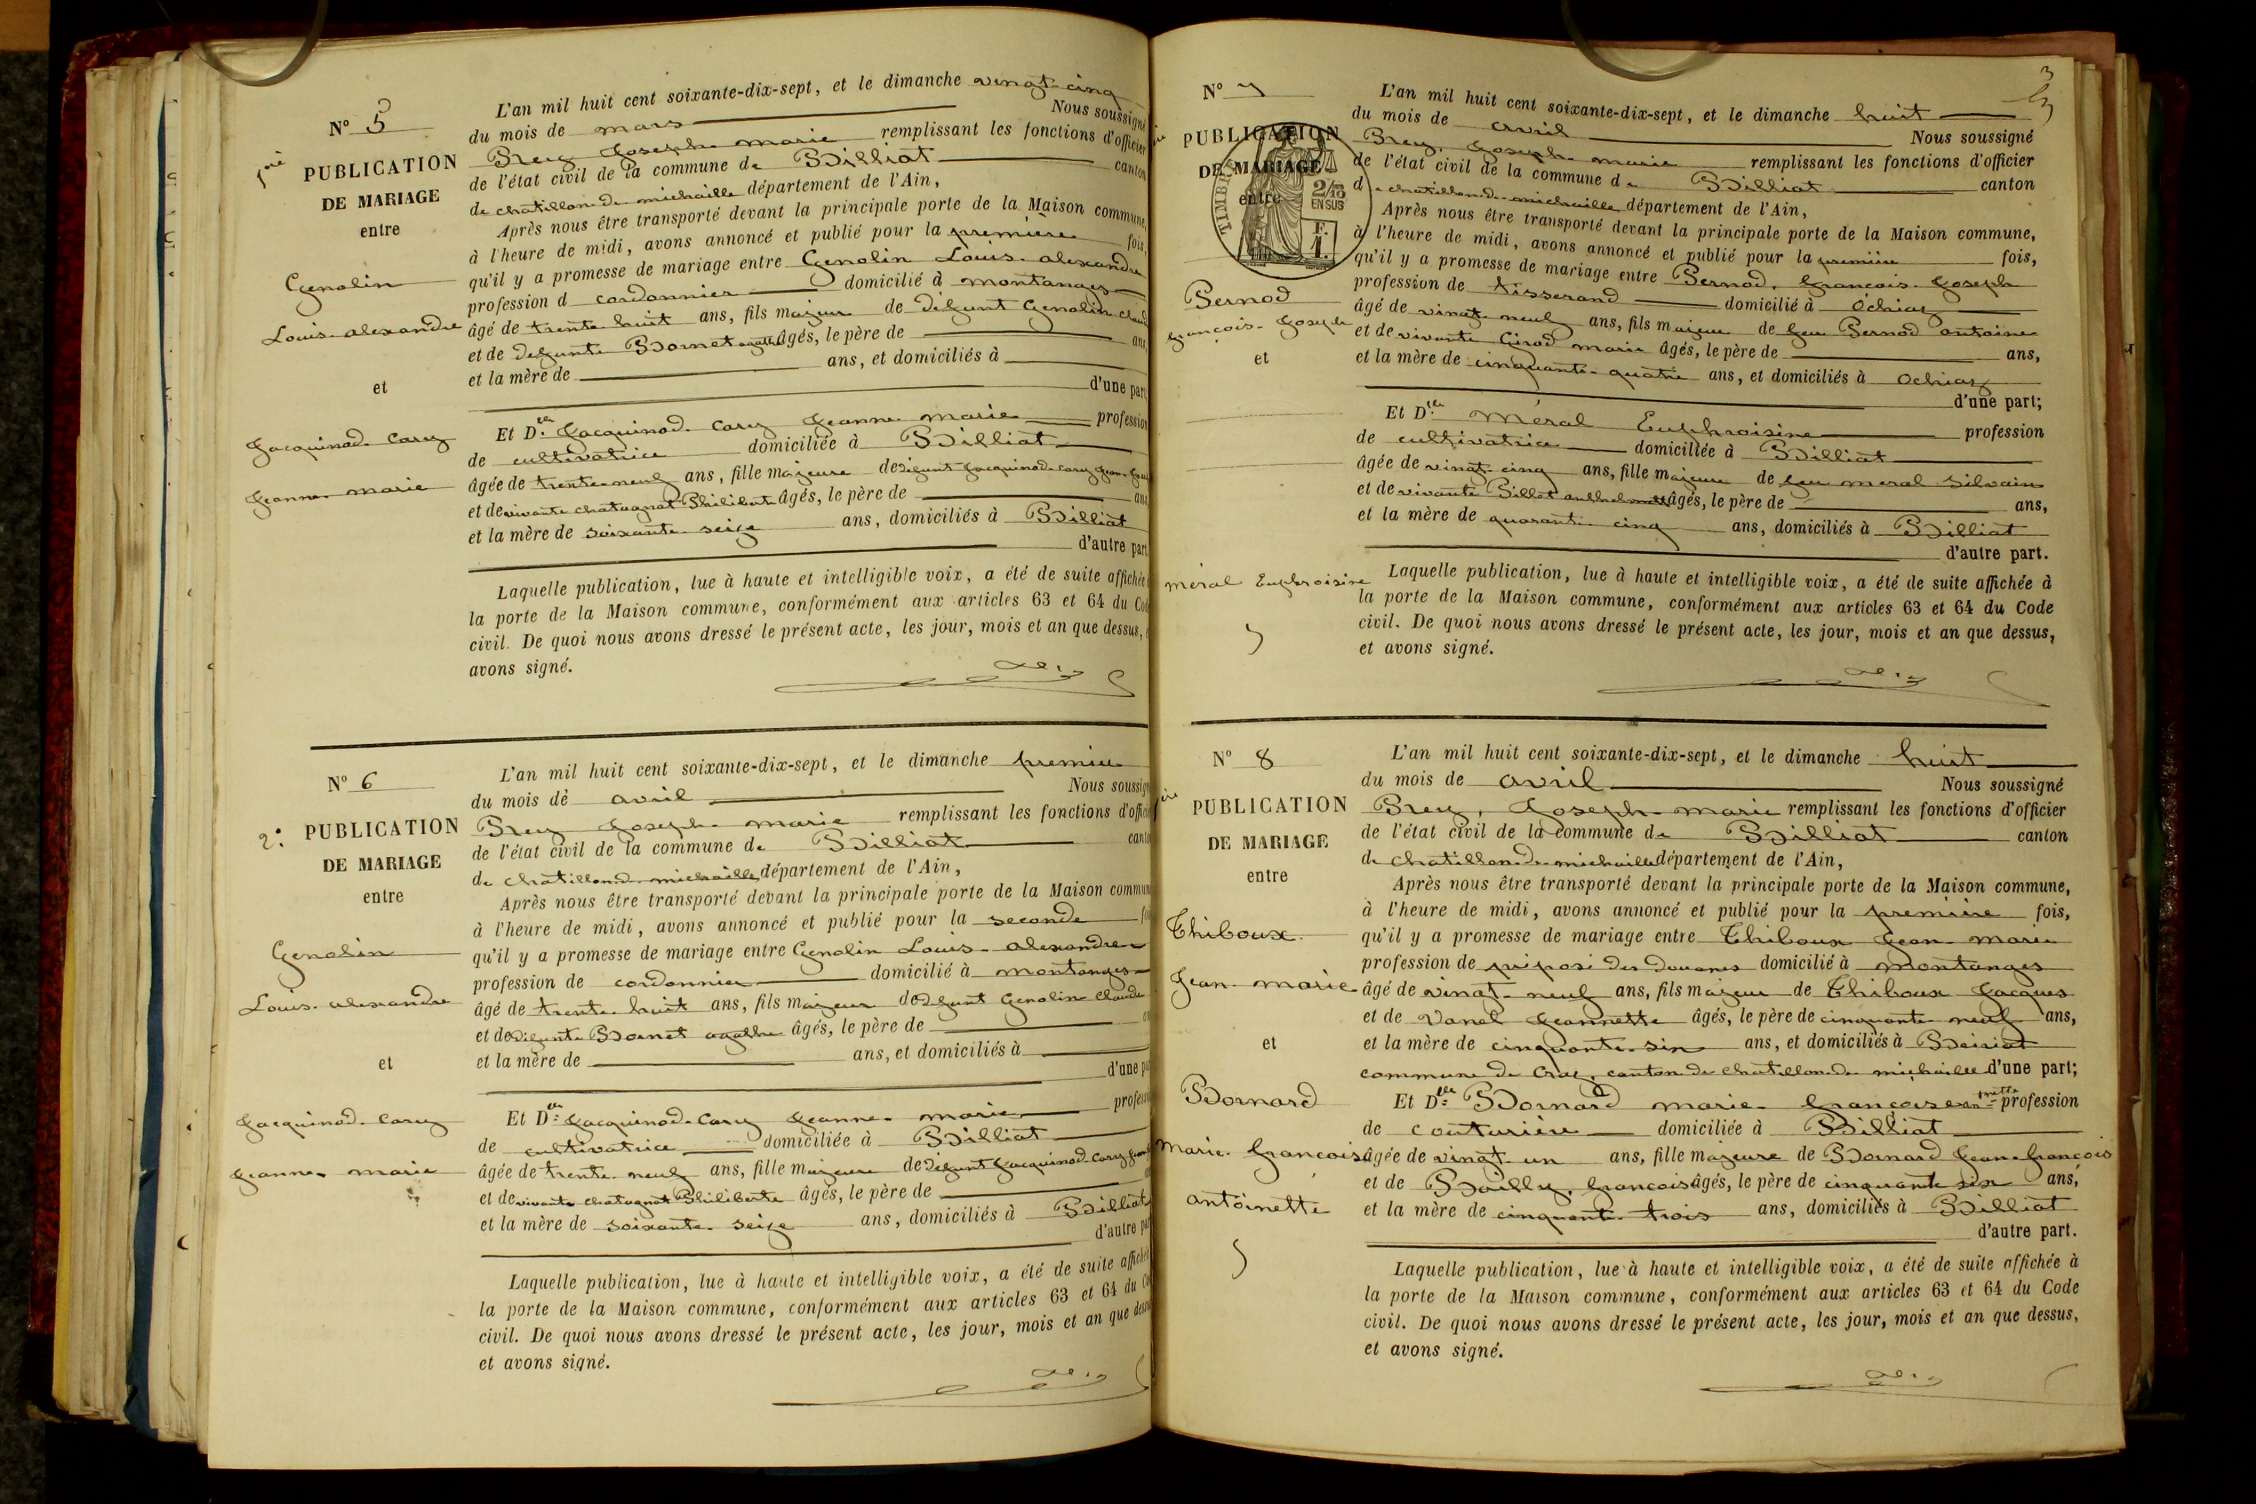 N° 5
1ère
PUBLICATION
DE MARIAGE
entre
Genolin
Louis-alexandre
et
Jacquinod-Carry
Jeanne-marie
L'an mil huit cent soixante-dix-sept, et le dimanche vingt-cinq
du mois de mars Nous soussigné
Brey Joseph-marie remplissant les fonctions d'officier
de l'état civil de la commune de Billiat canton
de chatillon-de-michaille département de l'Ain,
Après nous être transporté devant la principale porte de la Maison commune,
à l'heure de midi, avons annoncé et publié pour la première fois,
qu'il y a promesse de mariage entre Genolin Louis-alexandre
profession d cordonnier domicilié à montanges
âgé de trente-huit ans, fils majeur de défunt Genolin Claude
et de defunte Bornet agathe âgés, le père de ans,
et la mère de ans, et domiciliés à
d'une part,
Et Dlle Jacquinod-Carry Jeanne-marie profession
de cultivatrice domiciliée à Billiat
âgée de trente-neuf ans, fille majeure de défunt Jacquinod-Carry Jean
et de vivante chatagnat Philiberte âgés, le père de ans
et la mère de soixante-seize ans, domiciliés à Billiat
d'autre part
Laquelle publication, lue à haute et intelligible voix, a été de suite affichée
la porte de la Maison commune, conformément aux articles 63 et 64 du Code
civil. De quoi nous avons dressé le présent acte, les jour, mois et an que dessus,
avons signé.
N° 6
2e
PUBLICATION
DE MARIAGE
entre
Genolin
Louis-alexandre
et
Jacquinod-Carry
Jeanne-marie
L'an mil huit cent soixante-dix-sept, et le dimanche premier
du mois de avril Nous soussigné
Brey Joseph-marie remplissant les fonctions d'officier
de l'état civil de la commune de Billiat canton
de chatillon-de-michaille département de l'Ain,
Après nous être transporté devant la principale porte de la Maison commune
à l'heure de midi, avons annoncé et publié pour la seconde fois
qu'il y a promesse de mariage entre Genolin Louis-alexandre
profession de cordonnier domicilié à montanges
âgé de trente-huit ans, fils majeur de défunt Genolin Claude
et de défunte Bornet agathe âgés, le père de
et la mère de ans, et domiciliés à
d'une part
Et Dlle Jacquinod-Carry Jeanne-marie profession
de cultivatrice domiciliée à Billiat
âgée de trente-neuf ans, fille majeure de défunt Jacquinod-Carry Jean
et de vivante chatagnat Philiberte âgés, le père de
et la mère de soixante-seize ans, domiciliés à Billiat
d'autre part
Laquelle publication, lue à haute et intelligible voix, a été de suite affichée
la porte de la Maison commune, conformément aux articles 63 et 64 du Code
civil. De quoi nous avons dressé le présent acte, les jour, mois et an que dessus
et avons signé.
3
N° 7
1ère
PUBLICATION
DE MARIAGE
entre
TIMBRE
2/10
EN SUS
F.
1.
Pernod
françois-Joseph
et
méral Euphroisine
L'an mil huit cent soixante-dix-sept, et le dimanche huit
du mois de avril Nous soussigné
Brey, Joseph-marie remplissant les fonctions d'officier
de l'état civil de la commune de Billiat canton
de chatillon-de-michaille département de l'Ain,
Après nous être transporté devant la principale porte de la Maison commune,
à l'heure de midi, avons annoncé et publié pour la première fois,
qu'il y a promesse de mariage entre Pernod, françois-Joseph
profession de tisserand domicilié à Ochiaz
âgé de vingt-neuf ans, fils majeur de feu Pernod antoine
et de vivante Girod marie âgés, le père de ans,
et la mère de cinquante-quatre ans, et domiciliés à Ochiaz
d'une part;
Et Dlle Méral Euphroisine profession
de cultivatrice domiciliée à Billiat
âgée de vingt-cinq ans, fille majeure de feu meral Silvain
et de vivante Billot âgés, le père de ans,
et la mère de quarante-cinq ans, domiciliés à Billiat
d'autre part.
Laquelle publication, lue à haute et intelligible voix, a été de suite affichée à
la porte de la Maison commune, conformément aux articles 63 et 64 du Code
civil. De quoi nous avons dressé le présent acte, les jour, mois et an que dessus,
et avons signé.
N° 8
1ère
PUBLICATION
DE MARIAGE
entre
Thiboux
Jean-marie
et
Bornard
Marie-françoise
antoinette
L'an mil huit cent soixante-dix-sept, et le dimanche huit
du mois de avril Nous soussigné
Brey, Joseph-marie remplissant les fonctions d'officier
de l'état civil de la commune de Billiat canton
de chatillon-de-michaille département de l'Ain,
Après nous être transporté devant la principale porte de la Maison commune,
à l'heure de midi, avons annoncé et publié pour la première fois,
qu'il y a promesse de mariage entre Thiboux Jean-marie
profession de préposé des Douanes domicilié à montanges
âgé de vingt-neuf ans, fils majeur de Thiboux Jacques
et de Vanel Jeannette âgés, le père de cinquante-neuf ans,
et la mère de cinquante-six ans, et domiciliés à
commune de Craz, canton de chatillon-de-michaille d'une part;
Et Dlle Bornard marie-françoise antte profession
de couturière domiciliée à Billiat
âgée de vingt-un ans, fille majeure de Bornard Jean-françois
et de Bailly, françoise âgés, le père de cinquante-six ans,
et la mère de cinquante-trois ans, domiciliés à Billiat
d'autre part.
Laquelle publication, lue à haute et intelligible voix, a été de suite affichée à
la porte de la Maison commune, conformément aux articles 63 et 64 du Code
civil. De quoi nous avons dressé le présent acte, les jour, mois et an que dessus,
et avons signé.